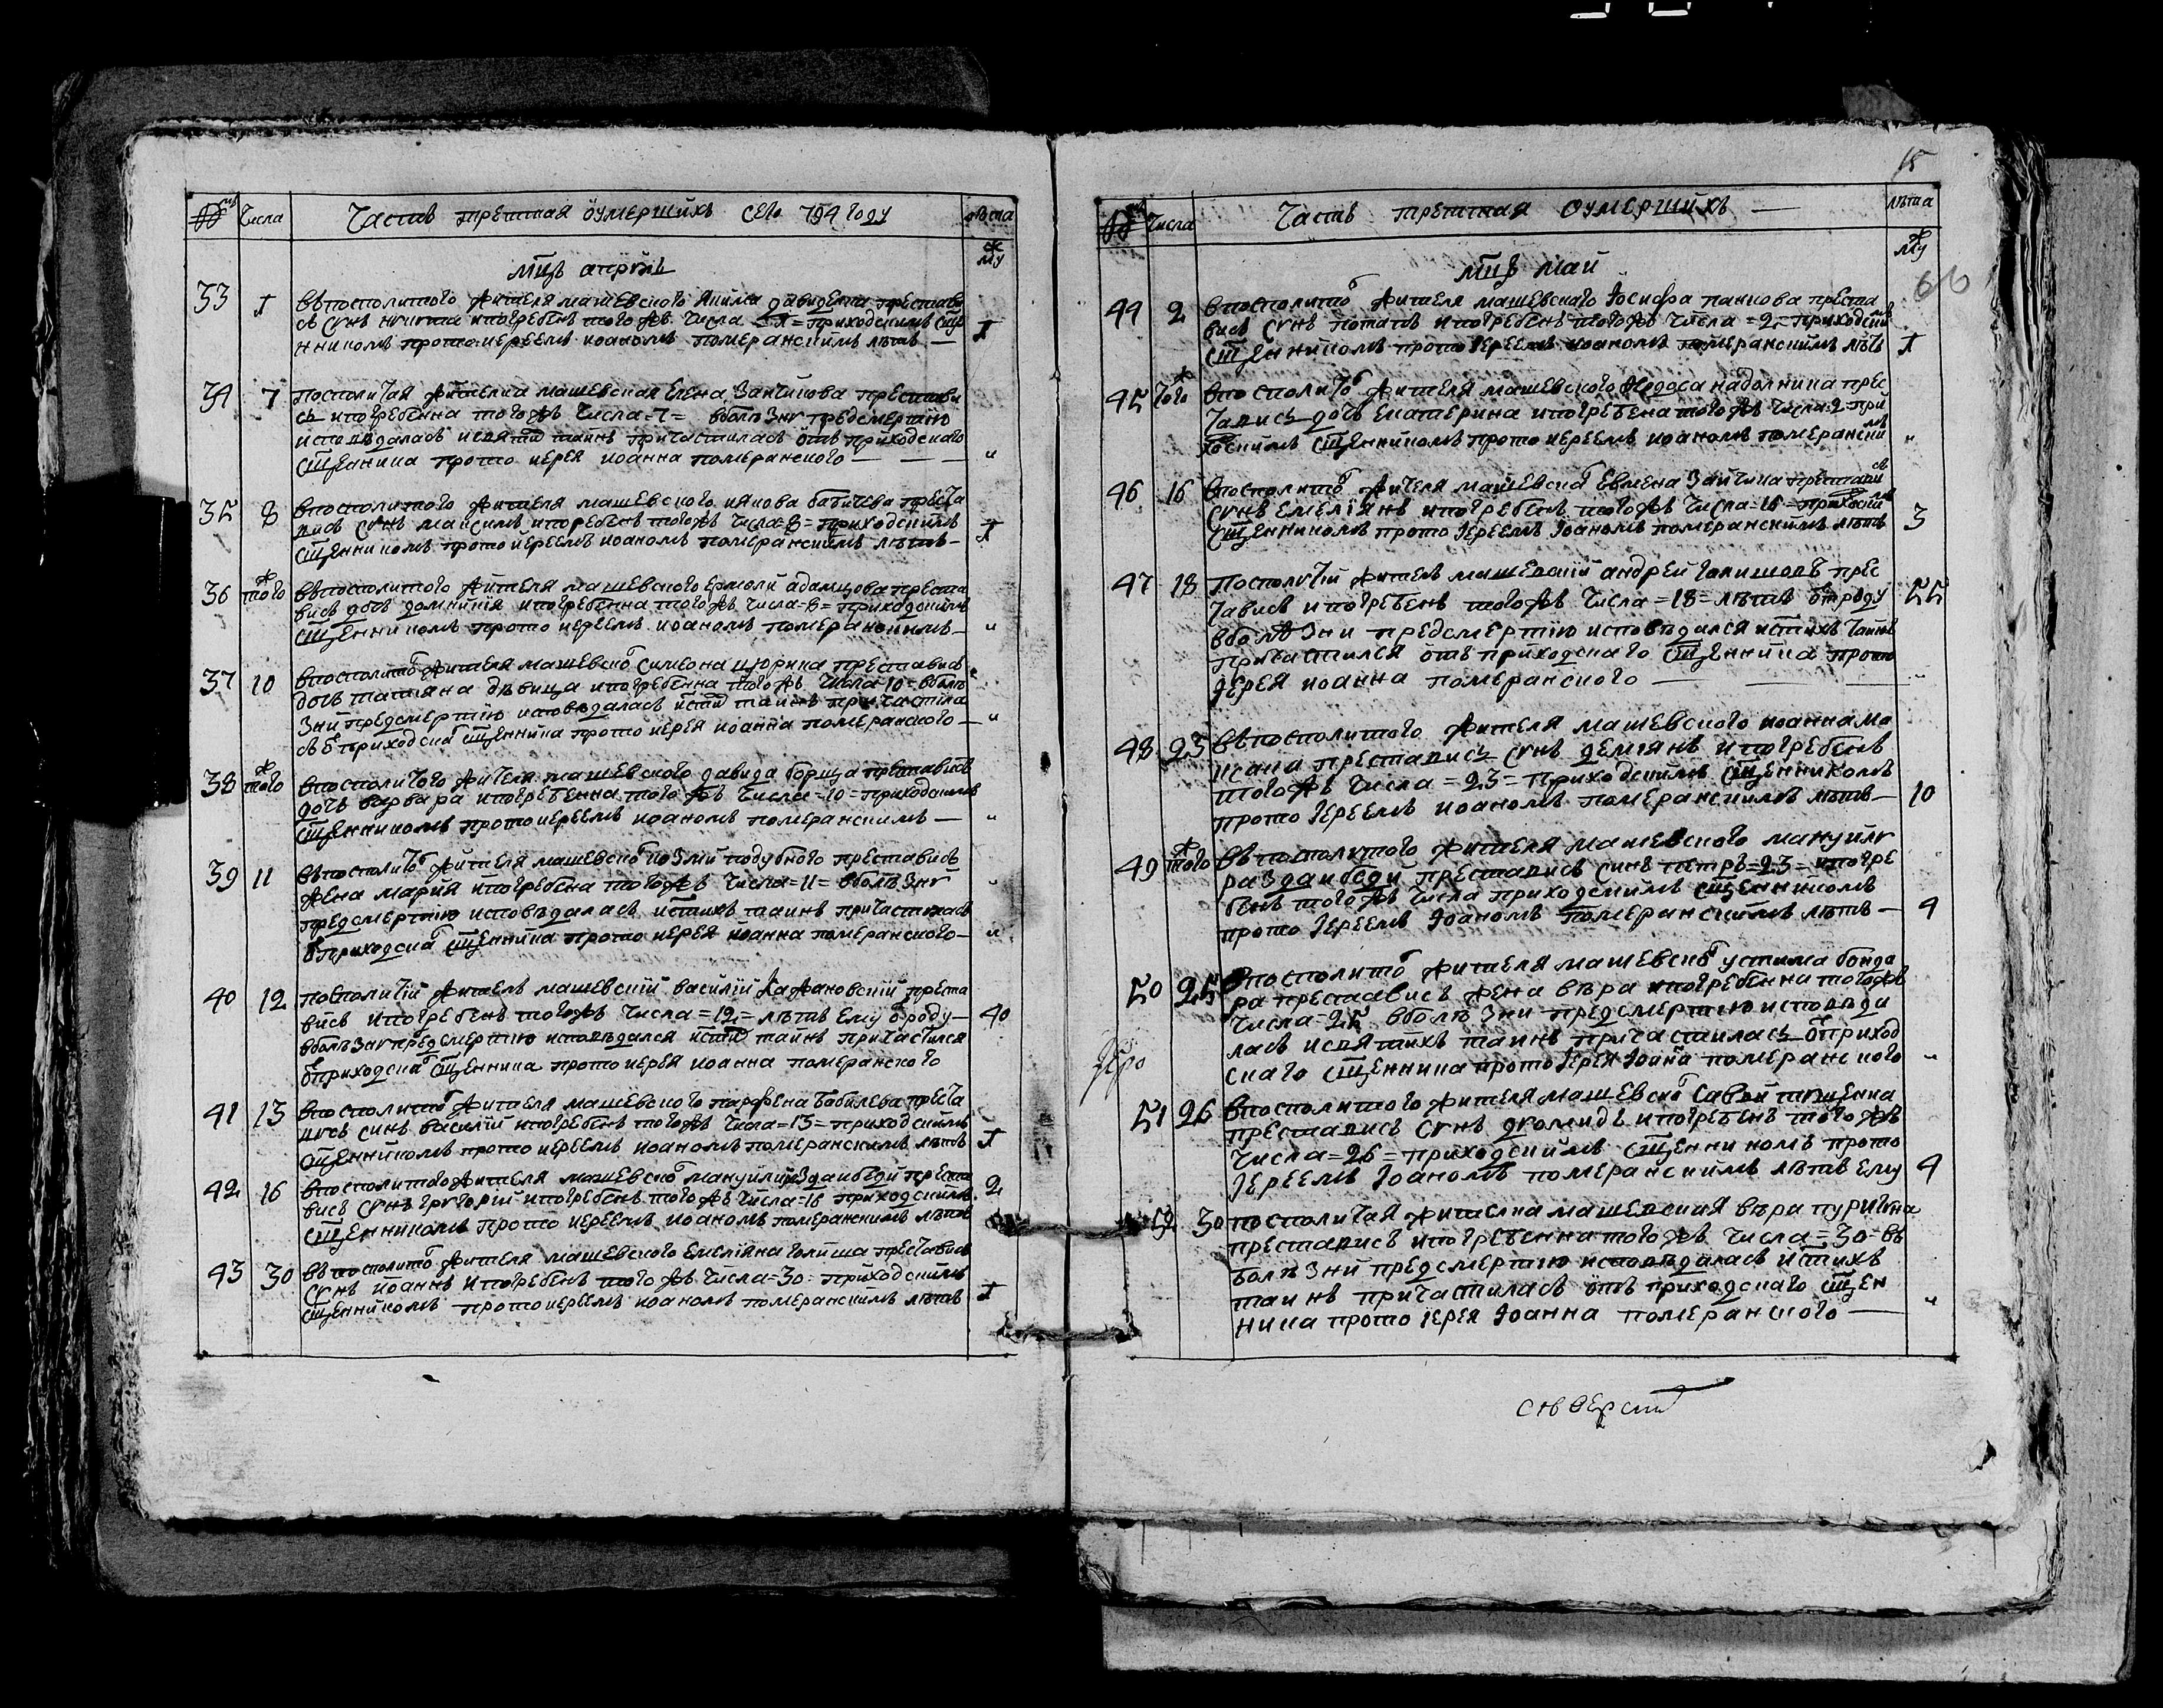 Числа Часть третяя оумершихъ сего 794 году
мцъ апрѣль
му
33 1 въ посполитого жителя машевского преставі
сь сынъ и погребенъ того жъ числа =1= приходскимъ сще
нникомъ прото иереемъ иоаномъ померанскимъ лѣтъ — 1
34 7 посполитая жителка машевская Елена Заичикова преставі
сь и погребенна того жъ числа =7= вболѣзни предсмертию
исповѣдалась и тайнъ причастилась отъ приходского
сщенника прото иерея иоанна померанского — "
35 8 впосполитого жителя машевского иякова бабичева преста
вись сынъ максимъ и погребенъ того жъ числа =8= приходскимъ
сщенникомъ прото иереемъ иоаномъ померанскимъ лѣтъ — 1
36 того ж въ посполитого жителя машевского ермоли адамцова преста
вись дочь домникия и погребенна того жъ числа =8= приходскимъ
сщенникомъ прото иереемъ иоаномъ померанскимъ — "
37 10 впосполито жителя машевско симеона цюрика преставись
дочь татияна дѣвица и погребенна того жъ числа =10= вболѣ
зни предсмертию исповѣдалась таинъ причастила
сь от приходска сщенника прото иерея иоанна померанского — "
38 того ж впосполитого жителя машевского давида борща преставись
дочь варвара и погребенна того жъ числа =10= приходскимъ
сщенникомъ прото иереемъ иоаномъ померанскимъ — "
39 11 въ посполито жителя машевско козми подубного преставись
жена мария и погребена того жъ числа =11= вболѣзни
предсмертию исповѣдалась и стихъ таинъ причастилась
от приходска сщенника прото иерея иоанна померанского — "
40 12 посполитий житель машевский василий кажановский преста
вись и погребенъ того жъ числа =12= лѣтъ ему от роду — 40
вболѣзни предсмертию исповѣдался тайнъ причастился
от приходска сщенника прото иерея иоанна померанского
41 13 впосполито жителя машевского парфена бабичева преста
вись синъ василий и погребенъ того жъ числа =13= приходскимъ
сщенникомъ прото иереемъ иоаномъ померанскимъ лѣтъ 1
42 16 впосполитого жителя машевско мануили преста
вись сынъ григорий и погребенъ того жъ числа =16 приходскимъ 2
сщенникомъ прото иереемъ иоаномъ померанскимъ лѣтъ
43 30 въ посполито жителя машевского емелияна голиша преставись
сынъ иоаннъ и погребенъ того жъ числа =30= приходскимъ
сщенникомъ прото иереемъ иоаномъ померанскимъ лѣтъ 1
15
Числа Часть третяя оумершихъ — лѣта
мцъ май
му
66
44 2 впосполито жителя машевского Иосифа панкова преста
вись сынъ потапъ и погребенъ того жъ числа =2= приходским
сщенникомъ прото иереемъ иоаномъ померанскимъ лѣтъ 1
45 того ж впосполито жителя машевского федоса надолника прес
тавись дочь екатерина и погребена того жъ числа =2= при
ходскимъ сщенникомъ прото иереемъ иоаномъ померанским "
46 16 впосполито жителя машевско евмена Заичика преставись
сынъ емелиянъ и погребенъ того жъ числа =16= приходским
сщенникомъ прото иереемъ иоаномъ померанскимъ лѣтъ 3
47 18 посполитий житель машевский андрей прес
тавись и погребенъ того жъ числа =18= лѣтъ от роду 55
вболѣзни предсмертию исповѣдился и стихъ тайнъ
причастился отъ приходскаго сщенника прото
иерея иоанна померанского —
48 23 въ посполитого жителя машевского иоанна мо
исаки преставись сынъ демянъ и погребенъ
того жъ числа =23= приходскимъ сщенникомъ
прото иереемъ иоаномъ померанскимъ лѣтъ — 10
49 того ж въ посполитого жителя машевского мануили
преставись синъ петръ =23= и погре
бенъ того жъ числа приходскимъ сщенникомъ
прото иереемъ иоаномъ померанскимъ лѣтъ — 4
50 25 впосполито жителя машевско устима бонда
ра преставись жена вѣра и погребенна того жъ
числа =25 вболѣзни предсмертию исповѣда
лась и святихъ таинъ причастилась от приход
скаго сщенника прото иерея иоана померанского "
51 26 впосполитого жителя машевско савви
преставись сынъ диомидъ и погребенъ того жъ
числа =26= приходскимъ сщенникомъ прото
иереемъ иоаномъ померанскимъ лѣтъ ему 4
52 30 посполитая жителка машевская вѣра
преставись и погребенна того жъ числа =30= въ
болѣзни предсмертию исповѣдалась и стихъ
таинъ причастилась отъ приходскаго сщен
ника прото иерея иоанна померанского — "